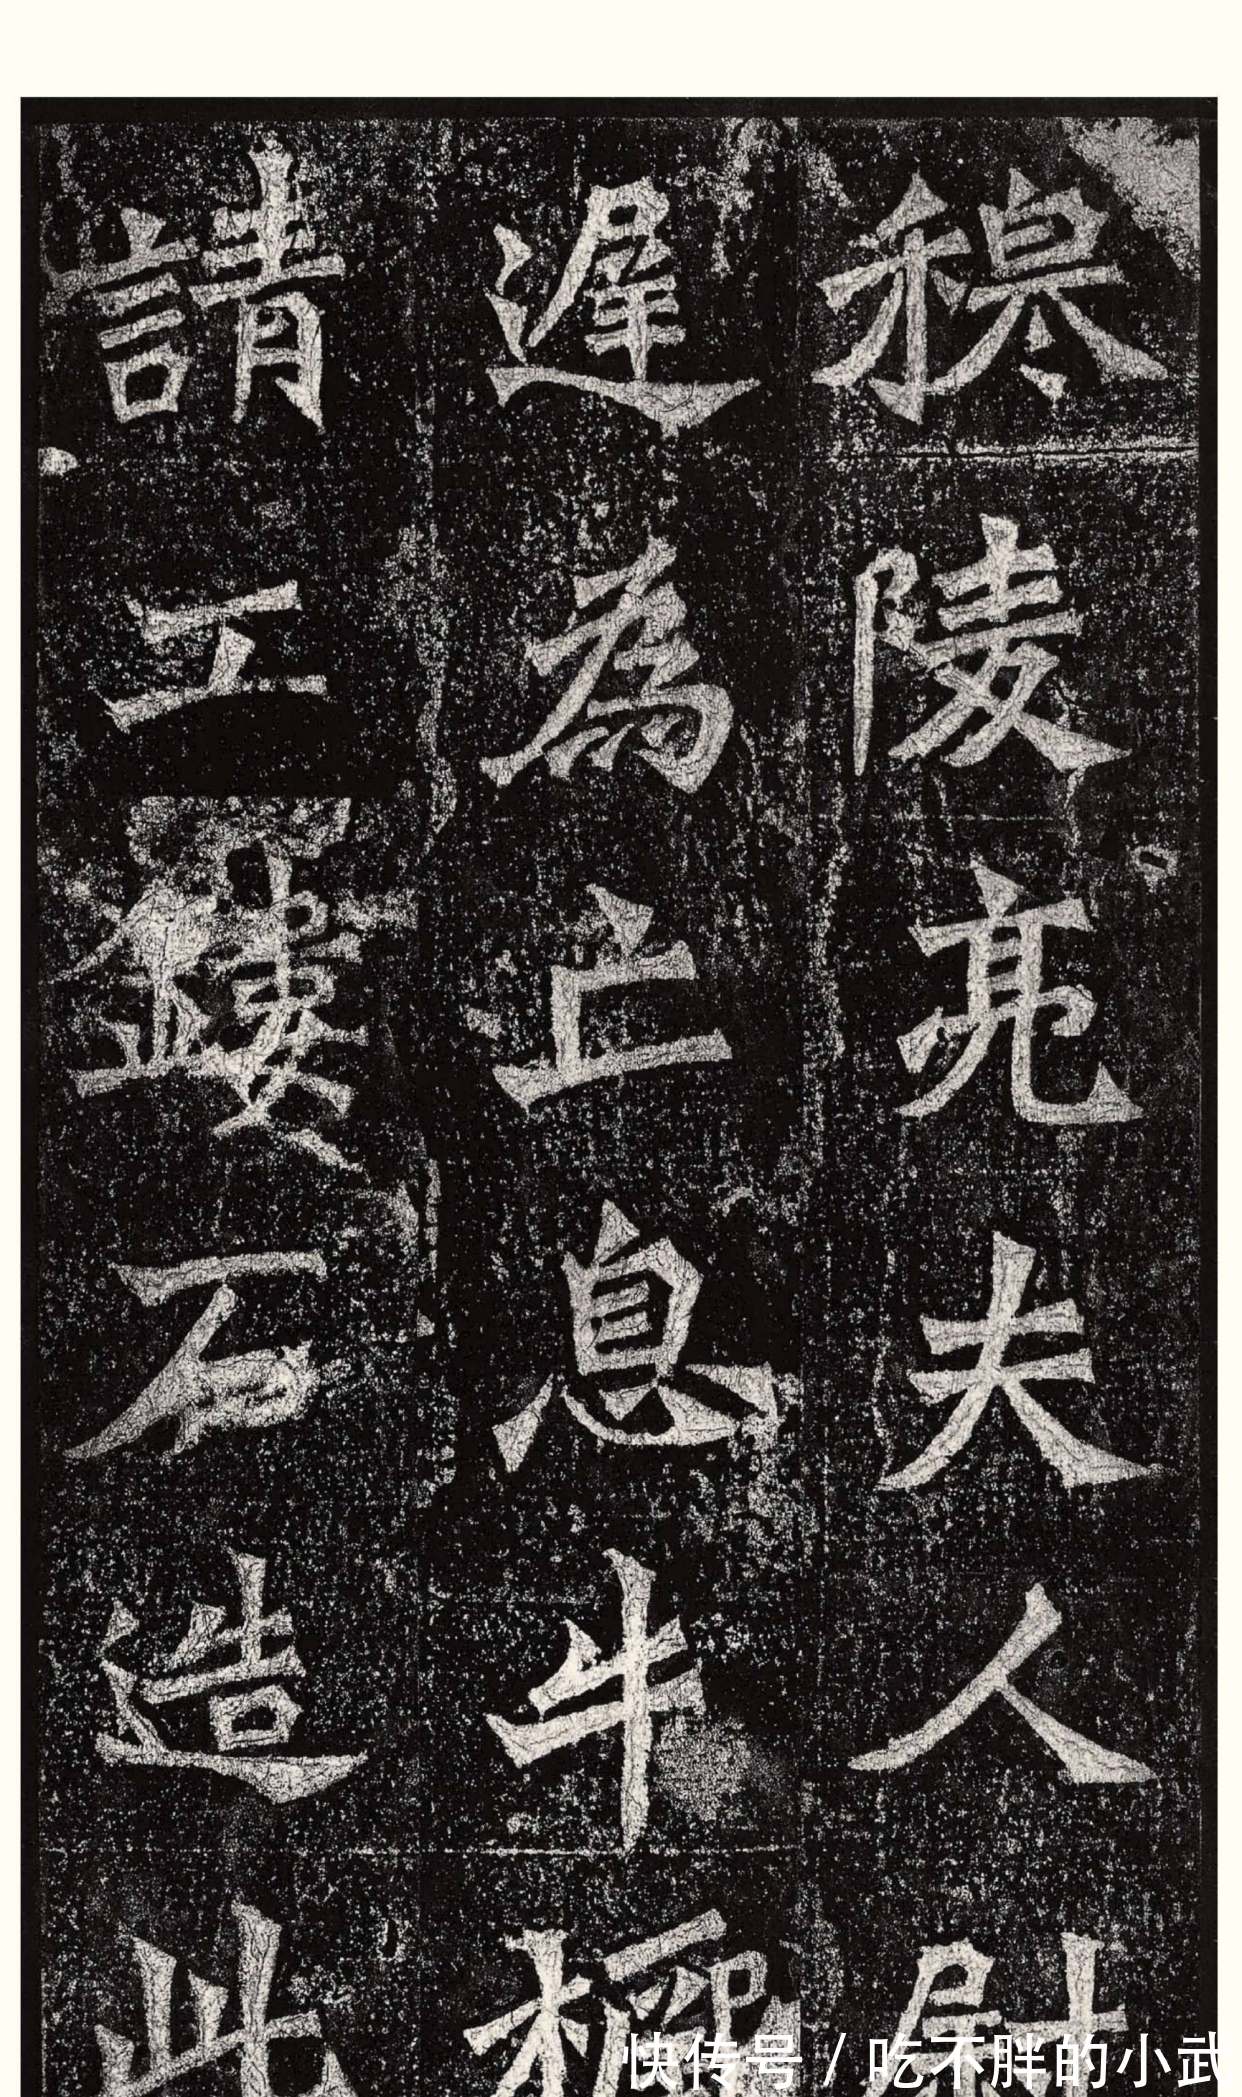 穆陵亮夫人尉
遲為亡息牛橛
請工鏤石造此
快传号 / 吃不胖的小武